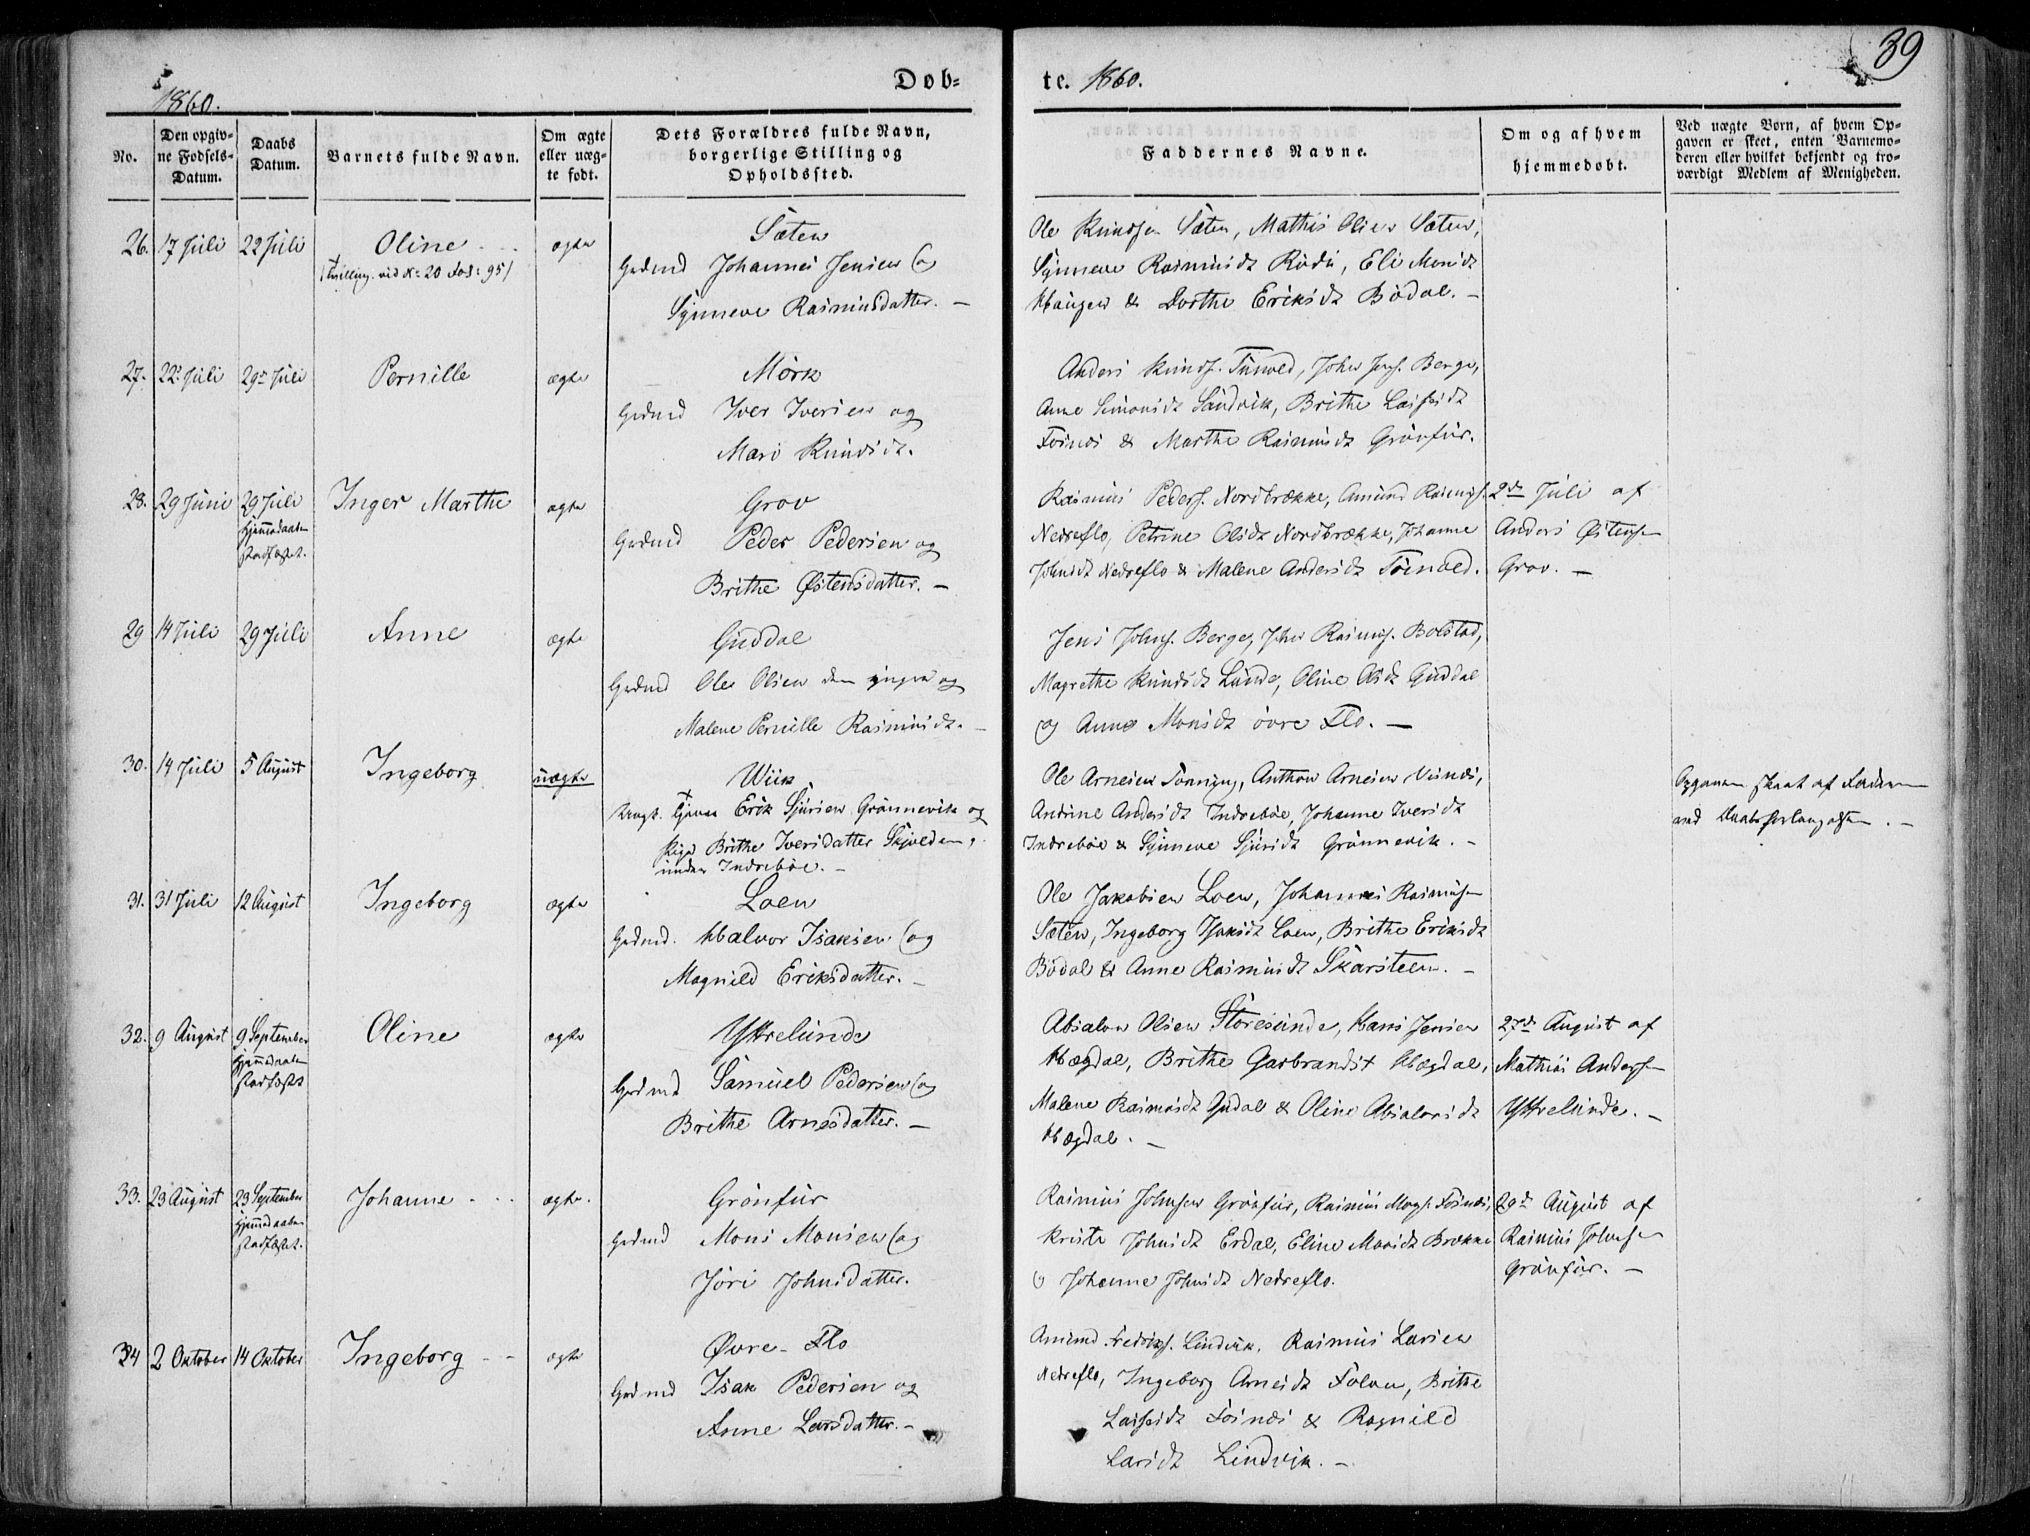 39
1860.
Døb-
te. 1860.
No.
Den opgiv-
ne Fødsels-
Datum.
Daabs
Datum.
Barnets fulde Navn.
Om ægte
eller uæg-
te født.
Dets Forældres fulde Navn,
borgerlige Stilling og
Opholdssted.
Faddernes Navne.
Om og af hvem
hjemmedøbt.
Ved uægte Børn, af hvem Op-
gaven er skeet, enten Barnemo-
deren eller hvilket bekjendt og tro-
værdigt Medlem af Menigheden.
26. 17 Juli 22 Juli Oline ægte
Sæten
Grdmd Johannes Jensen og
Synneve Rasmusdatter. -
Ole Knudsen Sæten, Mathis Olsen Sæten,
Synneve Rasmusdt Rødi, Eli Monsdt
Haugen & Dorthe Eriksdt Bødal. -
27. 22 Juli 29 Juli Pernille ægte
Mørk
Grdmd Iver Iversen og
Mari Knudsdt.
Anders Knuds. Tunold, John Jens. Berge,
Anne Simonsdt Sandvik, Brithe
& Marthe Rasmusdt Grønfur.
28. 29 Juni 29 Juli
hjemmedaaben
stadfæstet.
Inger Marthe ægte
Grov
Grdmd Peder Pedersen og
Brithe Østensdatter. -
Rasmus Peders. Nordbrække, Amund Rasmus.
Nedreflo, Petrine Olsdt Nordbrække, Johanne
Johnsdt Nedreflo & Malene Andersdt
2de Juli af
Anders Østensen
Grov. -
29 14 Juli 29 Juli Anne ægte
Guddal
Grdmd Ole Olsen den yngre og
Malene Pernille Rasmusdt. -
Jens Johns. Berge, John Rasmus. Bolstad,
Magrethe Knudsdt Lunde, Oline Olsdt Guddal
og Anne Monsdt øvre Flo. -
30. 14 Juli 5 August Ingeborg uægte
Wiik
Ungk. Erik Sjursen Grønnevik og
Pige Brithe Iversdatter Skjolden,
under Indrebøe. -
Ole Arnesen Tonning, Anthon Arnesen Visnes,
Andrine Andersdt Indrebøe, Johanne Iversdt
Indrebøe & Synneve Sjursdt Grønnevik. -
Opgaven skeet af Faderen
ved Daabsforlangelsen. -
31. 31 Juli 12 August Ingeborg ægte
Loen
Grdmd. Halvor Isaksen og
Magnild Eriksdatter. -
Ole Jakobsen Loen, Johannes Rasmusen
Sæten, Ingeborg Isaksdt Loen, Brithe Eriksdt
Bødal & Anne Rasmusdt Skarsteen. -
32. 9 August 9 September
hjemmedaaben
stadfæstet
Oline ægte
Yttrelunde
Grdmd Samuel Pedersen og
Brithe Arnesdatter. -
Absalon Olsen Storesunde, Hans Jensen
Hægdal, Brithe Garbrandsdt Hægdal,
Malene Rasmusdt Gudal & Oline Absalonsdt
Hægdal. -
27de August af
Mathias Andersen
Yttrelunde. -
33. 23 August 23 September
hjemmedaaben
stadfæstet.
Johanne ægte.
Grønfur
Grdmd Mons Monsen og
Jøri Johnsdatter.
Rasmus Johnsen Grønfur, Rasmus Mogs.
Kristi Johnsdt Erdal, Eline Monsdt Brække
& Johanne Johnsdt Nedreflo.
29de August af
Rasmus Johnsen
Grønfur. -
34 2 Oktober 14 Oktober Ingeborg ægte
Øvre-Flo
Grdmd Isak Pedersen og
Anne Larsdatter. -
Amund Fredriks. Lindvik, Rasmus Larsen
Nedreflo, Ingeborg Arnesdt Folven, Brithe
& Ragnild
Larsdt Lindvik. -